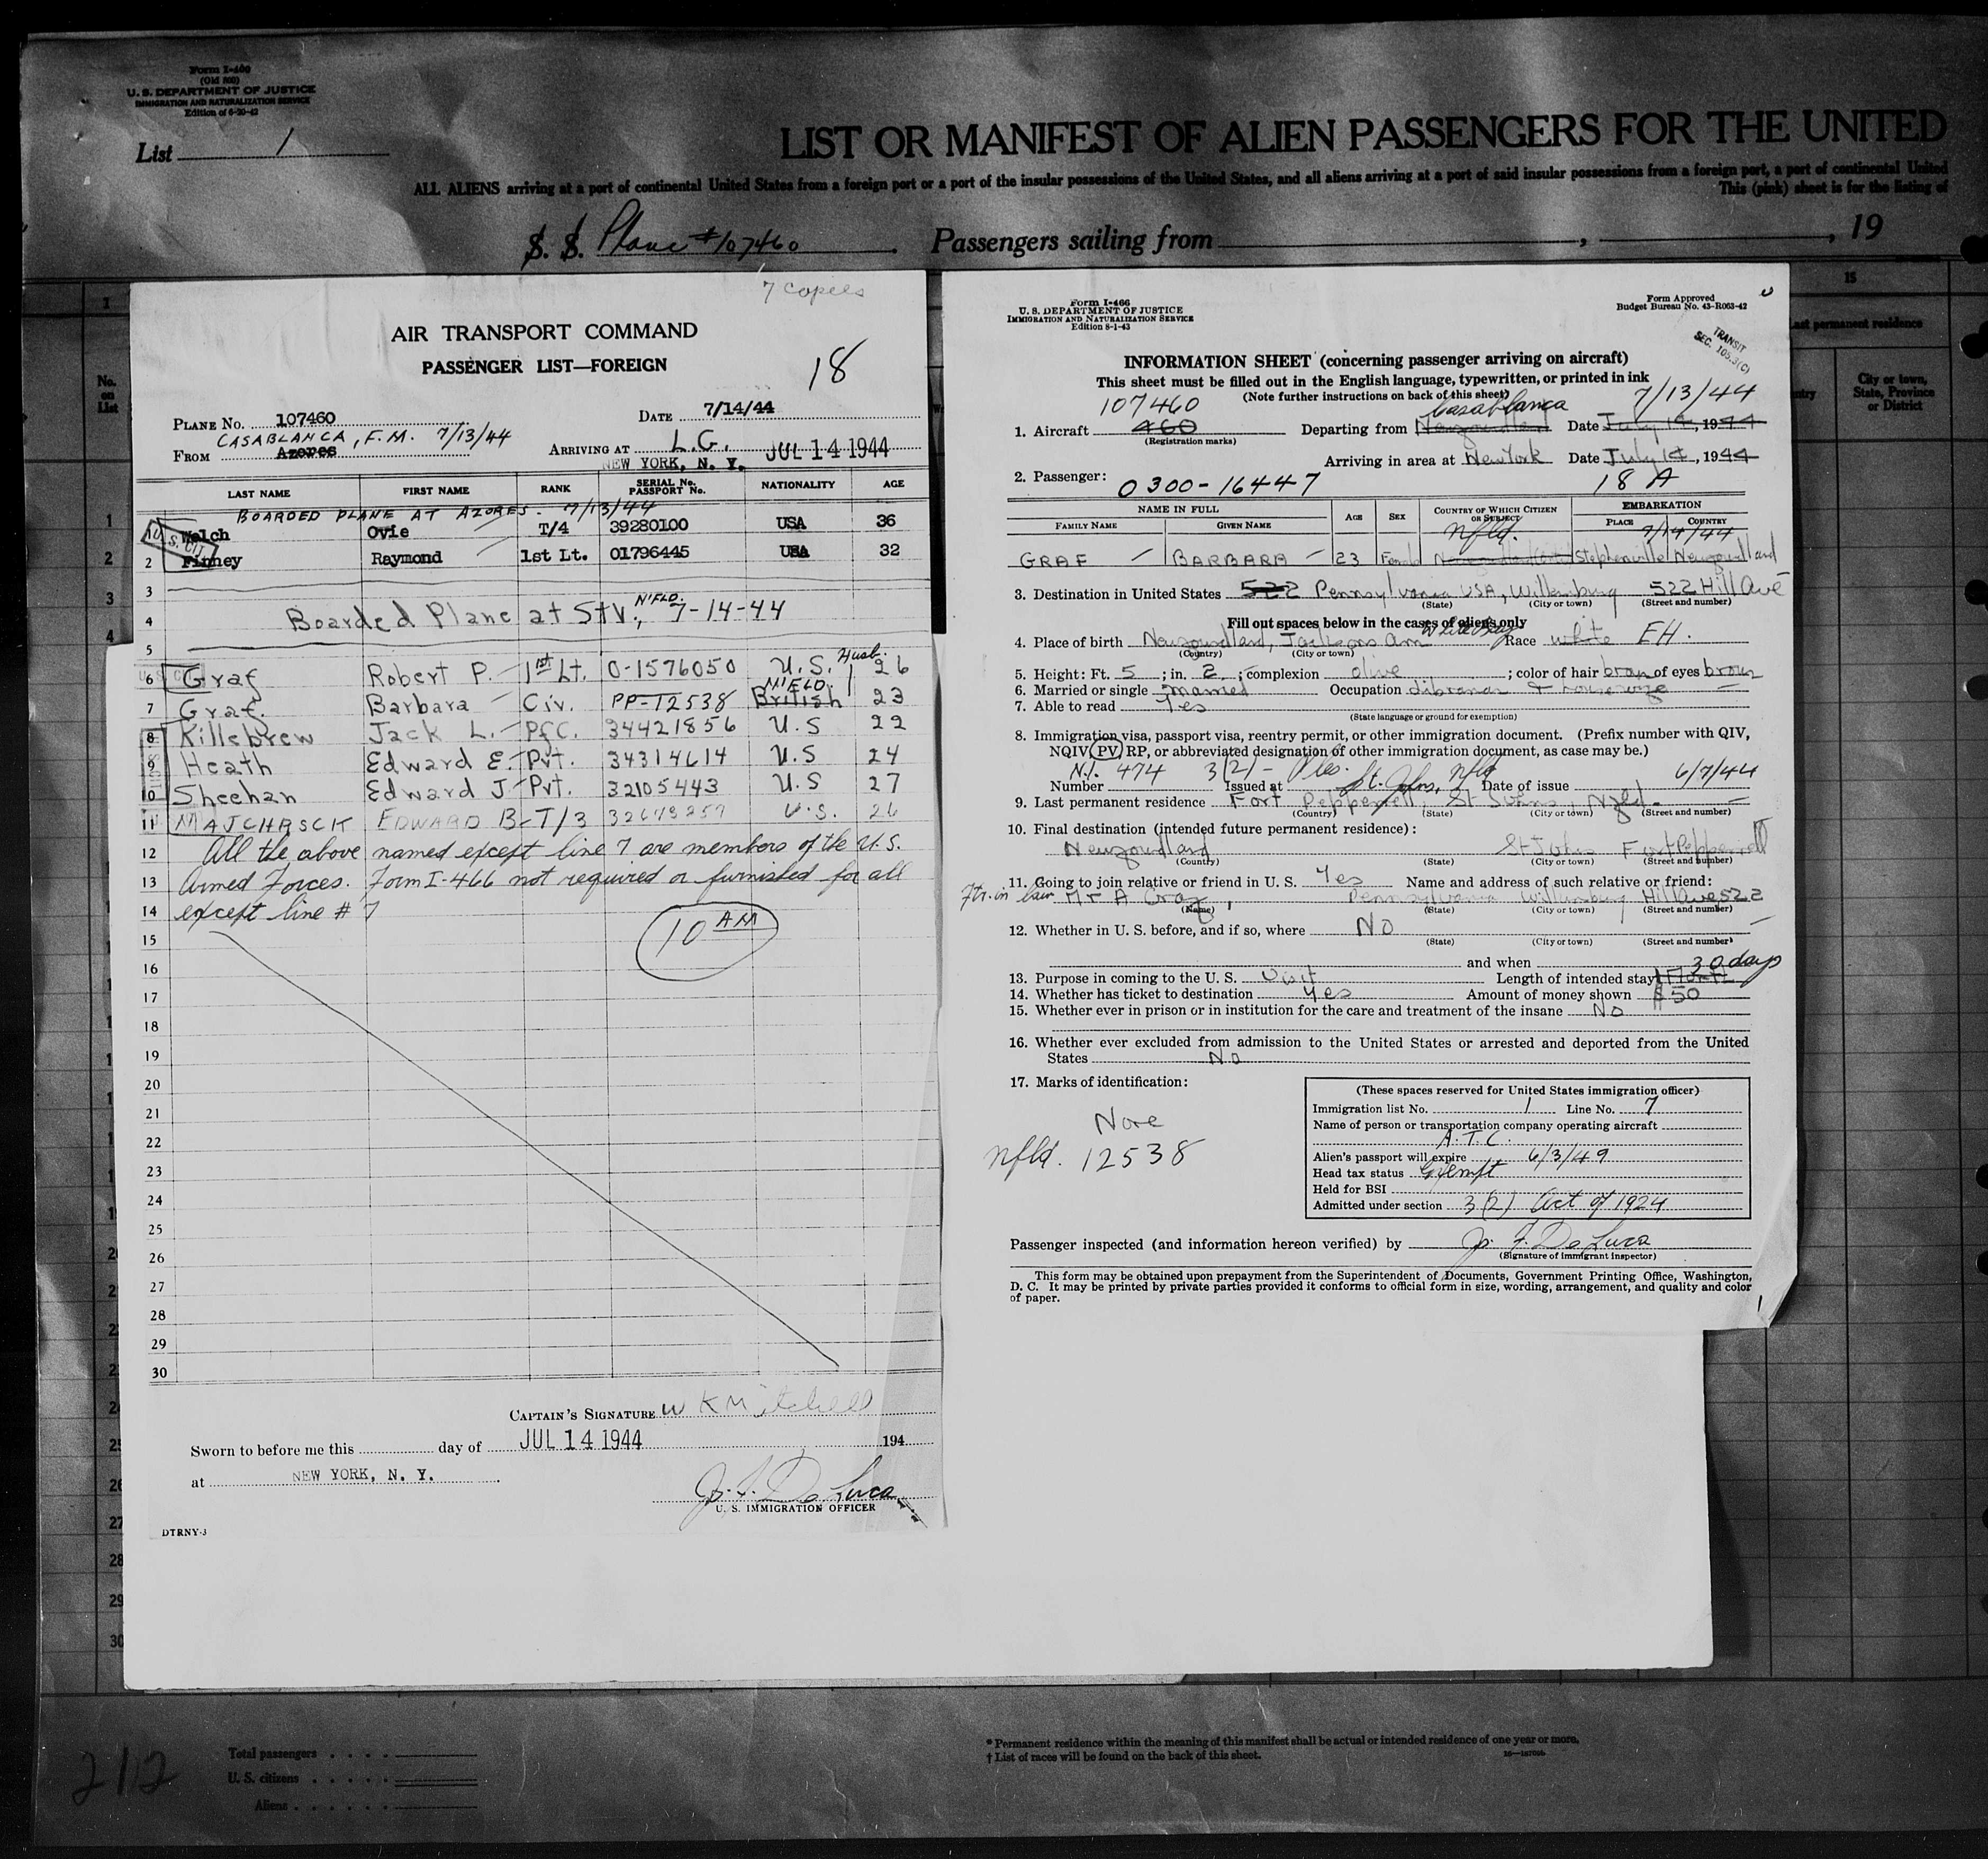 Form I-400
(Old 500)
U. S. DEPARTMENT OF JUSTICE
IMMIGRATION AND NATURALIZATION SERVICE
Edition of 6-20-42
List 1
LIST OR MANIFEST OF ALIEN PASSENGERS FOR THE UNITED
ALL ALIENS arriving at a port of continental United States from a foreign port or a port of the insular possessions of the United States, and all aliens arriving at a port of said insular possessions from a foreign port, a port of continental United
This (pink) sheet is for the listing of
S. S. Plane #107460 Passengers sailing from , , 19
7 copies
AIR TRANSPORT COMMAND
PASSENGER LIST—FOREIGN
18
PLANE No. 107460 DATE 7/14/44
CASABLANCA, F.M. 7/13/44
FROM Azores ARRIVING AT L.G. JUL 14 1944
NEW YORK, N. Y.
LAST NAME FIRST NAME RANK SERIAL No. PASSPORT No. NATIONALITY AGE
BOARDED PLANE AT AZORES - 7/13/44
1 Welch Ovie T/4 39280100 USA 36
U. S. CIT
2 Finney Raymond 1st Lt. 01796445 USA 32
3
4 Boarded Plane at STV, N'FLD. 7-14-44
5
6 Graf Robert P. 1st Lt. O-1576050 U.S. Husb. 26
7 Graf. Barbara Civ. PP-12538 British N'FLD. 23
8 Killebrew Jack L. Pfc. 34421856 U.S 22
9 Heath Edward E. Pvt. 34314614 U.S 24
10 Sheehan Edward J. Pvt. 32105443 U.S 27
11 MAJCHRSCK EDWARD B. T/3 32673257 U.S. 26
12 All the above named except line 7 are members of the U.S.
13 Armed Forces. Form I-466 not required or furnished for all
14 except line # 7
10 AM
15
16
17
18
19
20
21
22
23
24
25
26
27
28
29
30
CAPTAIN'S SIGNATURE W K Mitchell
Sworn to before me this day of JUL 14 1944 194
at NEW YORK, N. Y.
J. F. De Luca
U. S. IMMIGRATION OFFICER
DTRNY-3
Form I-466
U. S. DEPARTMENT OF JUSTICE
IMMIGRATION AND NATURALIZATION SERVICE
Edition 8-1-43
Form Approved
Budget Bureau No. 43-R063-42
TRANSIT
SEC. 105.3(C)
INFORMATION SHEET (concerning passenger arriving on aircraft)
This sheet must be filled out in the English language, typewritten, or printed in ink
(Note further instructions on back of this sheet)
107460 Casablanca 7/13/44
1. Aircraft 460 Departing from Newfoundland Date July 14, 1944
(Registration marks)
Arriving in area at New York Date July 14, 1944
2. Passenger: 0300-16447 18 A
NAME IN FULL AGE SEX COUNTRY OF WHICH CITIZEN OR SUBJECT EMBARKATION
FAMILY NAME GIVEN NAME PLACE COUNTRY
nfld. 7/14/44
GRAF BARBARA 23 Stephenville Newfoundland
3. Destination in United States 522 Pennsylvania USA, 522 Hill Ave
(State) (City or town) (Street and number)
Fill out spaces below in the cases of aliens only
4. Place of birth Newfoundland, Jacksons Arm White Bay Race white EH.
(Country) (City or town)
5. Height: Ft. 5 ; in. 2 ; complexion olive ; color of hair brown of eyes brown
6. Married or single married Occupation librarian & housewife
7. Able to read Yes
(State language or ground for exemption)
8. Immigration visa, passport visa, reentry permit, or other immigration document. (Prefix number with QIV,
NQIV, PV, RP, or abbreviated designation of other immigration document, as case may be.)
Number 474 3(2) Issued at St. Johns, Nfld Date of issue 6/7/44
9. Last permanent residence Fort Pepperrell, St Johns, Nfld.
(Country) (State) (City or town) (Street and number)
10. Final destination (intended future permanent residence):
Newfoundland St Johns Fort Pepperrell
(Country) (State) (City or town) (Street and number)
11. Going to join relative or friend in U. S. Yes Name and address of such relative or friend:
Ftr.-in law Mr A Graf, Pennsylvania Hill Ave 522
(Name) (State) (City or town) (Street and number)
12. Whether in U. S. before, and if so, where No
(State) (City or town) (Street and number)
and when
30 days
13. Purpose in coming to the U. S. Visit Length of intended stay 1 Month
14. Whether has ticket to destination Yes Amount of money shown $50
15. Whether ever in prison or in institution for the care and treatment of the insane No
16. Whether ever excluded from admission to the United States or arrested and deported from the United
States No
17. Marks of identification:
None
nfld. 12538
(These spaces reserved for United States immigration officer)
Immigration list No. 1 Line No. 7
Name of person or transportation company operating aircraft
A.T.C.
Alien's passport will expire 6/3/49
Head tax status Exempt
Held for BSI
Admitted under section 3(2) Act of 1924
Passenger inspected (and information hereon verified) by J. F. De Luca
(Signature of immigrant inspector)
This form may be obtained upon prepayment from the Superintendent of Documents, Government Printing Office, Washington,
D. C. It may be printed by private parties provided it conforms to official form in size, wording, arrangement, and quality and color
of paper.
15
Last permanent residence
City or town, State, Province or District
No. on List
Total passengers
U. S. citizens
Aliens
212
* Permanent residence within the meaning of this manifest shall be actual or intended residence of one year or more.
† List of races will be found on the back of this sheet.